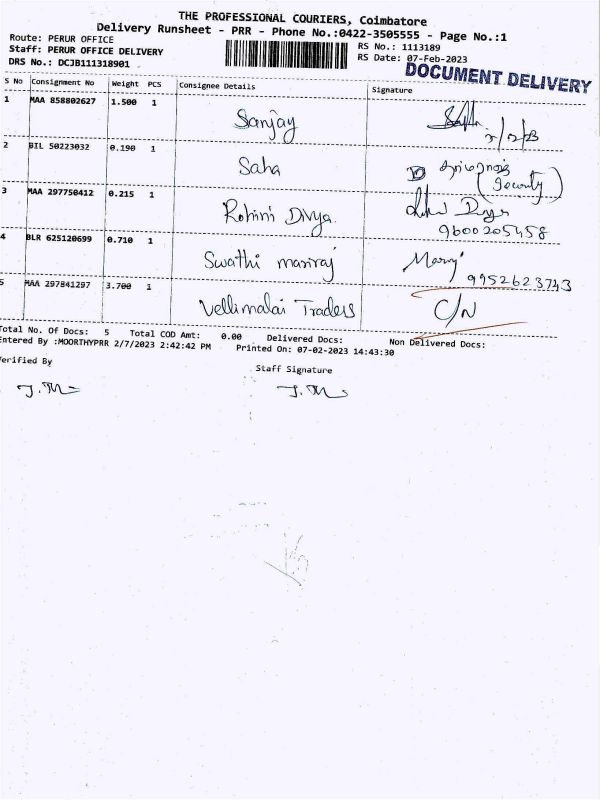 THE PROFESSIONAL COURIERS, Coimbatore
Delivery Runsheet - PRR - Phone No.:0422-3505555 - Page No.:1
Route: PERUR OFFICE
Staff: PERUR OFFICE DELIVERY
DRS No.: DCJB111318901
RS No.: 1113189
RS Date: 07-Feb-2023
DOCUMENT DELIVERY
S No Consignment No Weight PCS Consignee Details Signature
1 MAA 858802627 1.500 1 Sanjay
2 BIL 50223032 0.190 1 Saha
(Security)
3 MAA 297750412 0.215 1 Rohini Divya
9600205458
4 BLR 625120699 0.710 1 Swathi mariraj Mary
9952623743
5 MAA 297841297 3.700 1 Vellimalai Traders C/N
Total No. Of Docs: 5 Total COD Amt: 0.00 Delivered Docs: Non Delivered Docs:
Entered By :MOORTHYPRR 2/7/2023 2:42:42 PM Printed On: 07-02-2023 14:43:30
Verified By Staff Signature